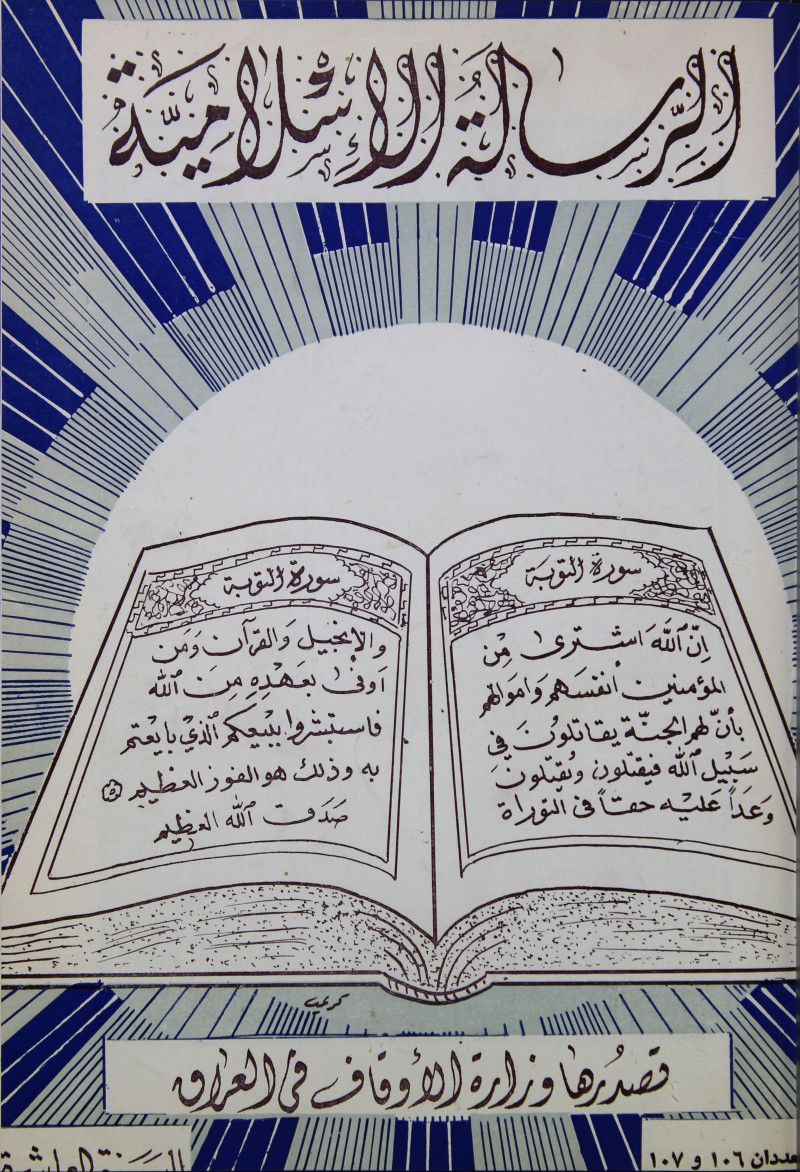 الرِّسَالَةُ الإِسْلَامِيَّة
سورة التوبَة
اِنّ ٱللَّهَ اشترىٰ مِن
المؤمنين أنفسَهم وَاموَالهم
بأنّ لهم الجنّة يقاتلُونَ فيِ
سَبيْلِ ٱلله فيقتلُون وَيُقتلونَ
وَعَداً عَليْه حقاً فى التوراة
سورة التوبة
والإنجيل وَالقرآن وَمَن
اَوفىٰ بعَهْدِهِ مِنَ ٱلله
فاستبشروا ببَيْعكم ٱلّذيْ بايْعتم
به وذلك هو الفوز العظيم
صَدَق ٱلله العظيم
كريم
تصْدُرها وزارة الأوقاف في العراق
عددان ١٠٦ و ١٠٧